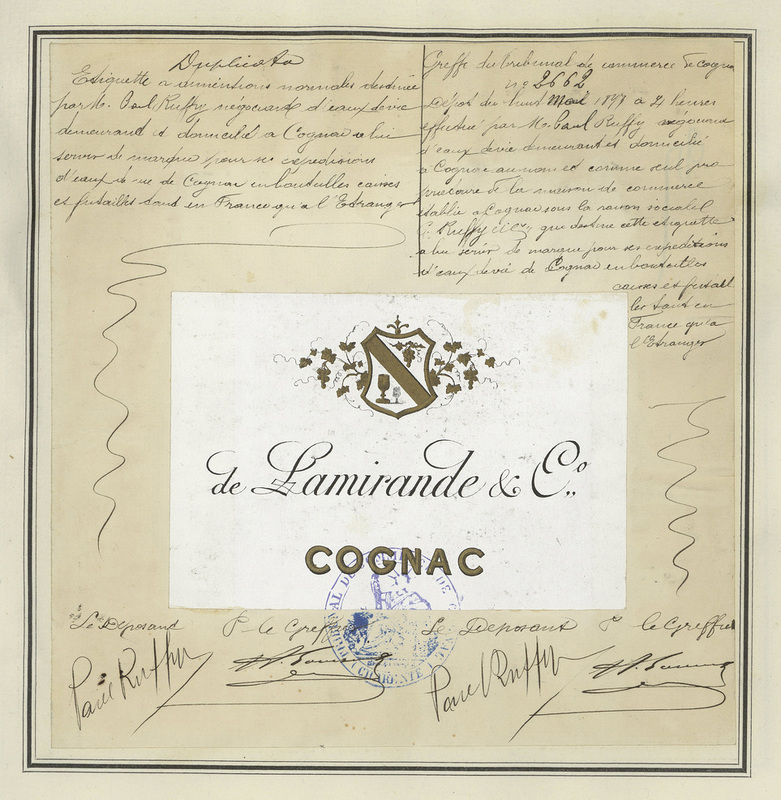 Duplicata
Etiquette à dimentions normales destinée
par M. Paul Ruffy négociant d'eaux de vie
demeurant et domicilié à Cognac à lui
servir de marque pour ses expeditions
d'eaux de vie de Cognac en bouteilles caisses
et futailles tant en France qu'à l'Etranger
Greffe du tribunal de commerce de Cognac
no 2662
Dépôt du huit Mai 1897 à 2 heures
effectué par M. Paul Ruffy négociant
d'eaux de vie demeurant et domicilié
à Cognac au nom et comme seul pro
priétaire de la maison de commerce
établie à Cognac sous la raison sociale
Ruffy et Cie, qui destine cette etiquette
à lui servir de marque pour ses expeditions
d'eaux de vie de Cognac en bouteilles
caisses et futail
les tant en
France qu'à
l'Etranger
de Lamirande & Co.,
COGNAC
TRIBUNAL DE COMMERCE DE
CHARENTE
Le Déposant P. le Greffier Le Deposant P. le Greffier
Paul Ruffy Paul Ruffy